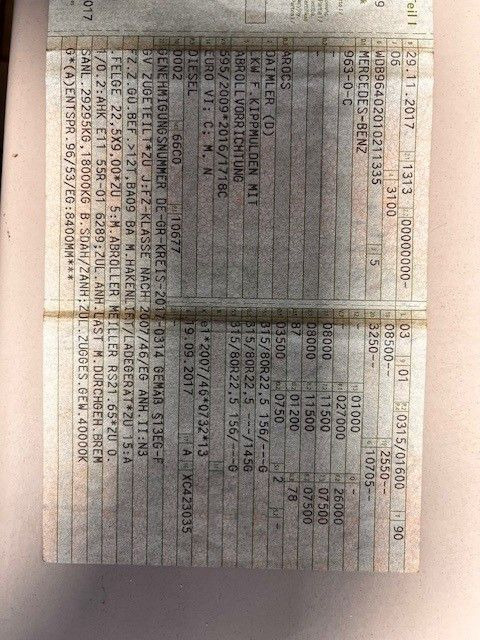 Teil I
29.11.2017 1313 00000000-
06 3100
WDB96402010211335 5
MERCEDES-BENZ
963-0-C
AROCS
DAIMLER (D)
LKW F.KIPPMULDEN MIT
ABROLLVORRICHTUNG
595/2009*2016/1718C
EURO VI; C; M, N
DIESEL
0002 6600 10677
GENEHMIGUNGSNUMMER DE-GR-KREIS-2017-0314 GEMÄß §13EG-F
GV ZUGETEILT*ZU J:FZ-KLASSE NACH 2007/46/EG ANH.II:N3
*Z.Z.GÜ.BEF.>12T,BA09 BA M.HAKENLIFT/LADEGERÄT*ZU 15:A
.FELGE 22.5X9.00*ZU 5:M.ABROLLER MEILLER RS21.65*ZU O.
1/O.2:AHK E11 55R-01 6289;ZUL.ANH.LAST M.DURCHGEH.BREM
SANL.29295KG,18000KG B.SDAH/ZANH;ZUL.ZUGGES.GEW.40000K
G*(A)ENTSPR.96/53/EG:8400MM***
03 01 0315/01600 90
08500-- 2550--
3250-- 10705--
01000 -
027000 26000
08000 11500 07500
08000 11500 07500
87 01200 78
03500 0750 2 -
315/80R22,5 156/---G
315/80R22,5 ---/145G
315/80R22,5 156/---G
e1*2007/46*0732*13
19.09.2017 A XC423035
017